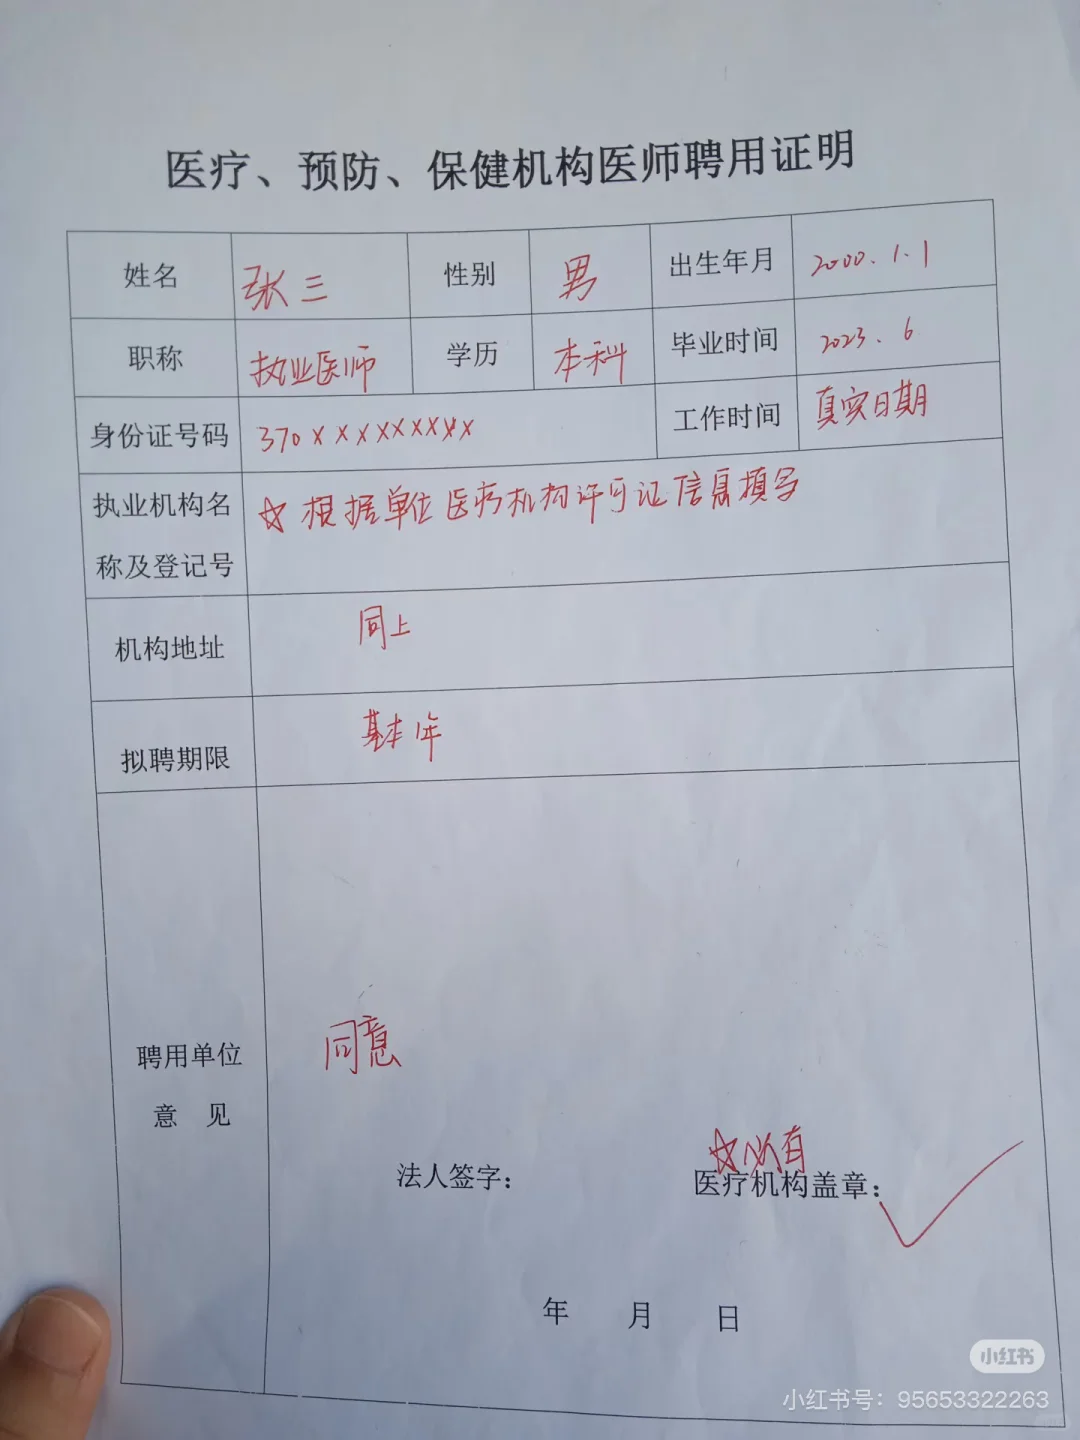 医疗、预防、保健机构医师聘用证明
姓名 张三 性别 男 出生年月 2000.1.1
职称 执业医师 学历 本科 毕业时间 2023.6
身份证号码 370××××××××× 工作时间 真实日期
执业机构名称及登记号 ☆根据单位医疗机构许可证信息填写
机构地址 同上
拟聘期限 基本1年
聘用单位
意 见
同意
☆必有
法人签字： 医疗机构盖章：✓
年 月 日
小红书
小红书号：95653322263